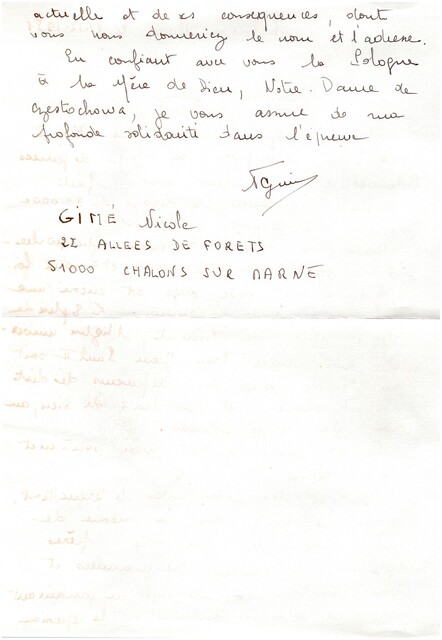 actuelle et de ses conséquences, dont
vous nous donneriez le nom et l'adresse.
En confiant avec vous la Pologne
à la Mère de Dieu, Notre-Dame de
Częstochowa, je vous assure de ma
profonde solidarité dans l'épreuve
GIMÉ Nicole
22 ALLEES DE FORETS
51000 CHALONS SUR MARNE